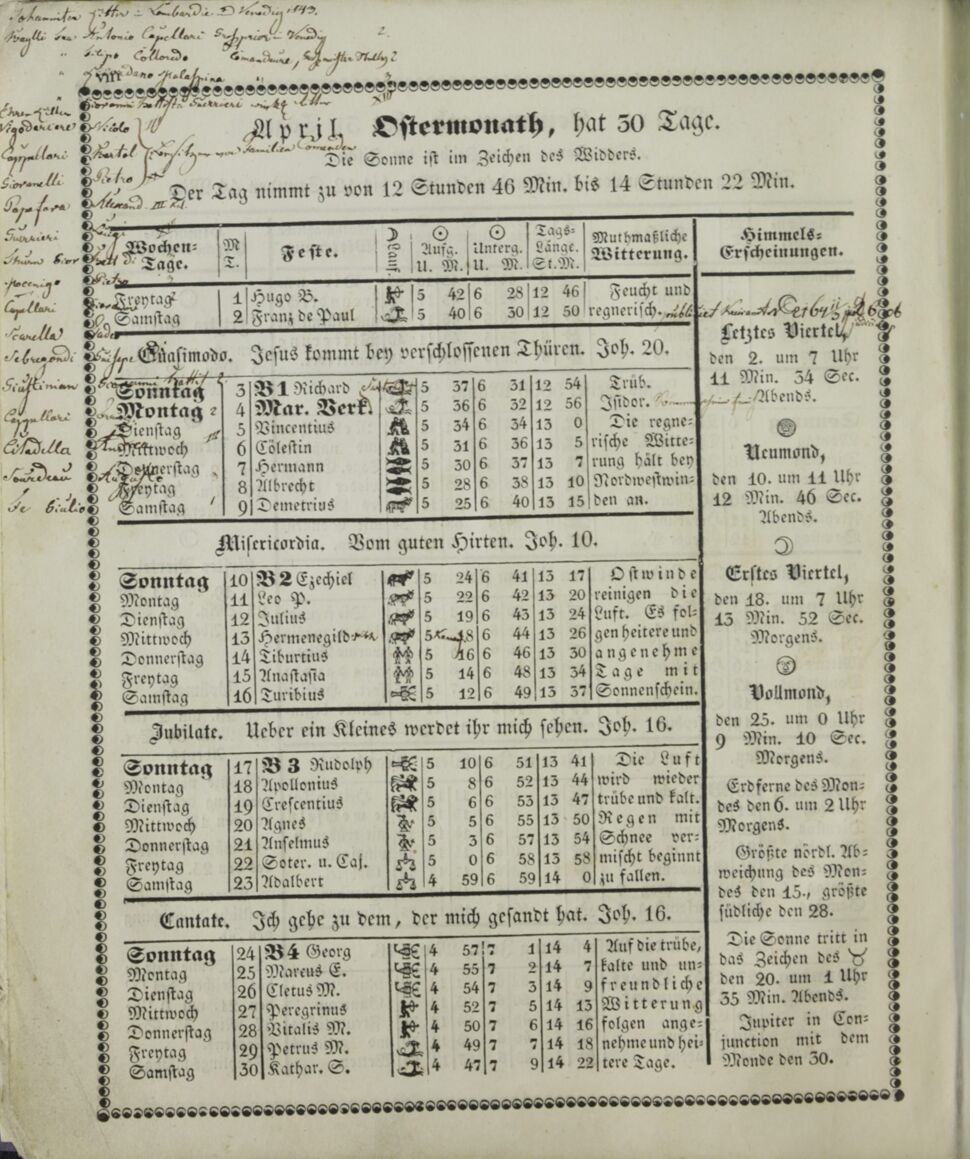 Johanniter Ritter – Lombardie & Venedig 1843.
Antonio Capellari Venedig
Filipo Colloredo
Giovanni Battista Guerrieri
Nicolo
Cappellari Bartol
Giovanelli Pietro
Papafava
Guerrieri
Capellari
Scarella
Sebregondi Giuseppe
Giustinian
Cappellari
Citadella
Sourdeau
Giulio
April, Ostermonath, hat 30 Tage.
Die Sonne ist im Zeichen des Widders.
Der Tag nimmt zu von 12 Stunden 46 Min. bis 14 Stunden 22 Min.
Wochen-Tage. M. T. Feste. ☽ Lauf ☉ Aufg. U. M. ☉ Unterg. U. M. Tags-Länge. St. M. Muthmaßliche Witterung. Himmels-Erscheinungen.
Freytag 1 Hugo B. 5 42 6 28 12 46 Feucht und
Samstag 2 Franz de Paul 5 40 6 30 12 50 regnerisch.
Quasimodo. Jesus kommt bey verschlossenen Thüren. Joh. 20.
Sonntag 3 B 1 Richard 5 37 6 31 12 54 Trüb.
Montag 4 Mar. Verk. 5 36 6 32 12 56 Isidor.
Dienstag 5 Vincentius 5 34 6 34 13 0 Die regne-
Mittwoch 6 Cölestin 5 31 6 36 13 5 rische Witte-
Donnerstag 7 Hermann 5 30 6 37 13 7 rung hält bey
Freytag 8 Albrecht 5 28 6 38 13 10 Nordwestwin-
Samstag 9 Demetrius 5 25 6 40 13 15 den an.
Misericordia. Vom guten Hirten. Joh. 10.
Sonntag 10 B 2 Ezechiel 5 24 6 41 13 17 Ostwinde
Montag 11 Leo P. 5 22 6 42 13 20 reinigen die
Dienstag 12 Julius 5 19 6 43 13 24 Luft. Es fol-
Mittwoch 13 Hermenegild 5 18 6 44 13 26 gen heitere und
Donnerstag 14 Tiburtius 5 16 6 46 13 30 angenehme
Freytag 15 Anastasia 5 14 6 48 13 34 Tage mit
Samstag 16 Turibius 5 12 6 49 13 37 Sonnenschein.
Jubilate. Ueber ein Kleines werdet ihr mich sehen. Joh. 16.
Sonntag 17 B 3 Rudolph 5 10 6 51 13 41 Die Luft
Montag 18 Apollonius 5 8 6 52 13 44 wird wieder
Dienstag 19 Crescentius 5 6 6 53 13 47 trübe und kalt.
Mittwoch 20 Agnes 5 5 6 55 13 50 Regen mit
Donnerstag 21 Anselmus 5 3 6 57 13 54 Schnee ver-
Freytag 22 Soter. u. Caj. 5 0 6 58 13 58 mischt beginnt
Samstag 23 Adalbert 4 59 6 59 14 0 zu fallen.
Cantate. Ich gehe zu dem, der mich gesandt hat. Joh. 16.
Sonntag 24 B 4 Georg 4 57 7 1 14 4 Auf die trübe,
Montag 25 Marcus E. 4 55 7 2 14 7 kalte und un-
Dienstag 26 Cletus M. 4 54 7 3 14 9 freundliche
Mittwoch 27 Peregrinus 4 52 7 5 14 13 Witterung
Donnerstag 28 Vitalis M. 4 50 7 6 14 16 folgen ange-
Freytag 29 Petrus M. 4 49 7 7 14 18 nehme und hei-
Samstag 30 Kathar. S. 4 47 7 9 14 22 tere Tage.
Letztes Viertel,
den 2. um 7 Uhr
11 Min. 34 Sec.
Abends.
Neumond,
den 10. um 11 Uhr
12 Min. 46 Sec.
Abends.
Erstes Viertel,
den 18. um 7 Uhr
13 Min. 52 Sec.
Morgens.
Vollmond,
den 25. um 0 Uhr
9 Min. 10 Sec.
Morgens.
Erdferne des Mon-
des den 6. um 2 Uhr
Morgens.
Größte nördl. Ab-
weichung des Mon-
des den 15., größte
südliche den 28.
Die Sonne tritt in
das Zeichen des ♉
den 20. um 1 Uhr
35 Min. Abends.
Jupiter in Con-
junction mit dem
Monde den 30.